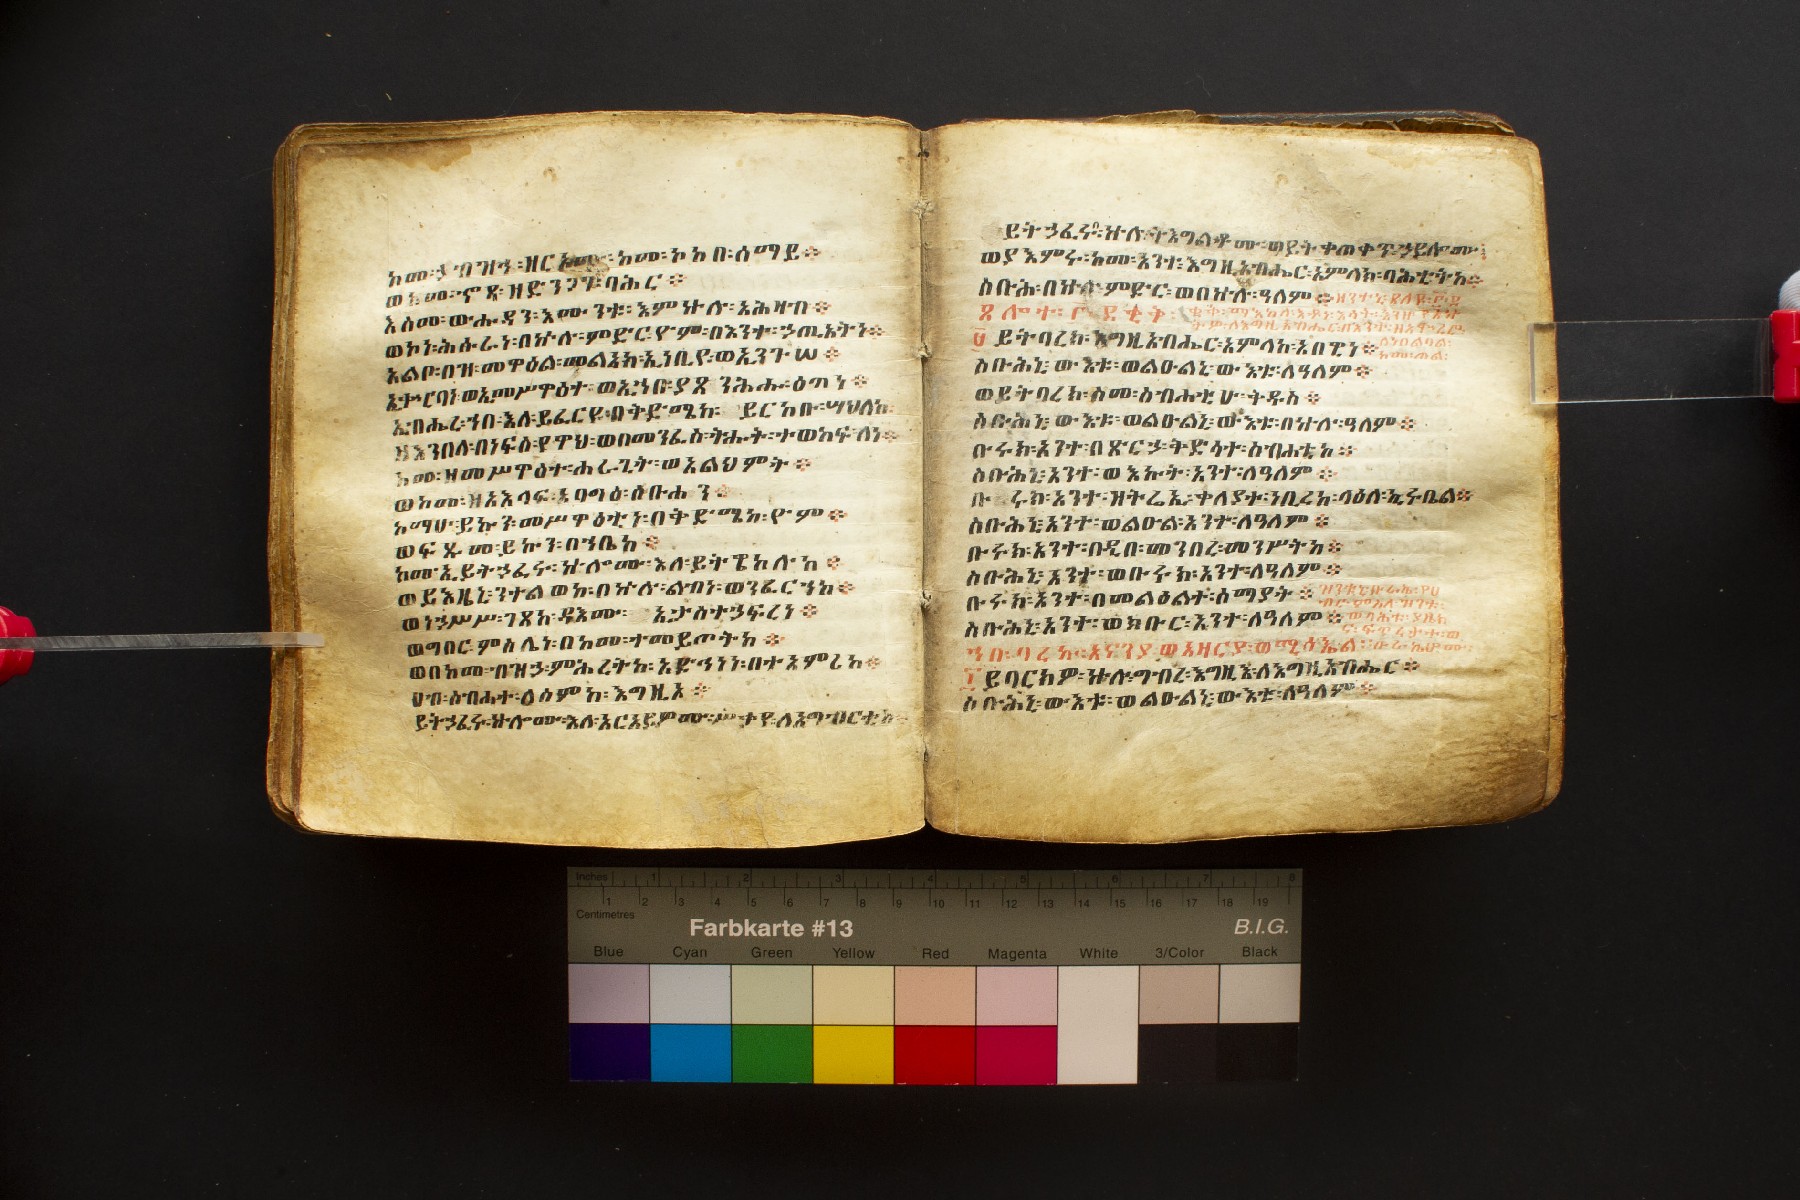 ከመ፡ኃ ብዝኁ፡ዘርእሙ፡ከመ፡ኮከበ፡ሰማይ፨
ወከመ፡ኆጻ፡ዘድንጋገ፡ባሕር፨
እስመ፡ውሑዳን፡እሙንቱ፡እምኵሉ፡አሕዛብ፨
ወኮነ፡ሕሱራነ፡በኵሉ፡ምድር፡ዮም፡በእንተ፡ኃጢአትነ፨
አልቦ፡በዝ፡መዋዕል፡መልአክ፡ኢነቢየ፡ወኢንጉሠ፨
ኢቍርባነ፡ወኢመሥዋዕተ፡ወኢኀበ፡ያጸንሕሑ፡ዕጣነ፨
ዘእንበለ፡በነፍስ፡የዋህ፡ወበመንፈስ፡ትሑት፡ተወከፍለነ፨
ከመ፡ዘመሥዋዕተ፡ሐራጊት፡ወአልህምት፨
ወከመ፡ዘአእላፍ፡አባግዕ፡ስቡሐን፨
ከማሁ፡ይኩን፡መሥዋዕቲነ፡በቅድሜከ፡ዮም፨
ወፍጹመ፡ይኩን፡በኀቤከ፨
ከመ፡ኢይትኃፈሩ፡ኵሎሙ፡እለ፡ይትዌከሉ፡ከ፨
ወይእዜኒ፡ንተልወከ፡በኵሉ፡ልብነ፡ወንፈርኀከ፨
ወነኃሥሥ፡ገጸከ፡ዳእሙ፡ ኢታስተኃፍረነ፨
ወግበር፡ምስሌነ፡በከመ፡ተመይጦትከ፨
ወበከመ፡ብዝኃ፡ምሕረትከ፡አድኀነነ፡በተአምሪከ፨
ሀብ፡ስብሐተ፡ለስምከ፡እግዚኦ፨
ይትኃፈሩ፡ኵሎሙ፡እለ፡አርአይዎሙ፡ሥቃየ፡ለአግብርቲከ
ይትኃፈሩ፡ኵሉ፡ትእግልቶሙ፡ወይትቀጠቀጥ፡ኃይሎሙ፡
ወያእምሩ፡ከመ፡አንተ፡እግዚአብሔር፡አምላክ፡ባሕቲትከ፨
ስቡሕ፡በኵሉ፡ምድር፡ወበኵሉ፡ዓለም፨
ጸሎተ፡፫ደቂቅ፡
ይትባረክ፡እግዚአብሔር፡አምላከ፡አበዊነ፨
ስቡሕኒ፡ውእቱ፡ወልዑልኒ፡ውእቱ፡ለዓለም፨
ወይትባረክ፡ስመ፡ስብሐቲሁ፡ቅዱስ፨
ስቡሕኒ፡ውእቱ፡ወልዑልኒ፡ውእቱ፡በኵሉ፡ዓለም፨
ቡሩክ፡አንተ፡በጽርኃ፡ቅድሳተ፡ስብሐቲከ፨
ስቡሕኒ፡አንተ፡ወእኩት፡አንተ፡ለዓለም፨
ቡሩክ፡አንተ፡ዘትሬኢ፡ቀላያተ፡ነቢረከ፡ላዕለ፡ኪሩቤል፨
ስቡሕኒ፡አንተ፡ወልዑል፡አንተ፡ለዓለም፨
ቡሩክ፡አንተ፡በዲበ፡መንበረ፡መንግሥትከ፨
ስቡሕኒ፡አንተ፡ወቡሩክ፡አንተ፡ለዓለም፨
ቡሩክ፡አንተ፡በመልዕልተ፡ሰማያት፨
ስቡሕኒ፡አንተ፡ወክቡር፡አንተ፡ለዓለም፨
ኀበ፡ባረክ፡አናንያ፡ወአዛርያ፡ወሚሳኤል፡
ይባርክዎ፡ኵሉ፡ግብረ፡እግዚእ፡ለእግዚአብሔር፨
ስቡሕኒ፡ውእቱ፡ወልዑልኒ፡ውእቱ፡ለዓለም፨
Inches 1 2 3 4 5 6 7 8
1 2 3 4 5 6 7 8 9 10 11 12 13 14 15 16 17 18 19
Centimetres
Farbkarte #13 B.I.G.
Blue Cyan Green Yellow Red Magenta White 3/Color Black